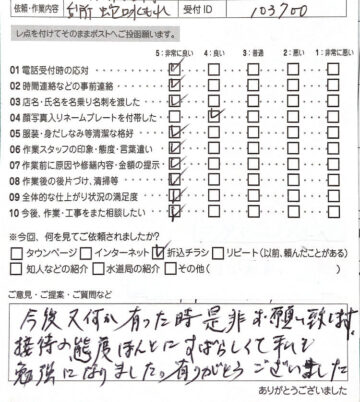 依頼・作業内容 台所 蛇口水もれ 受付ID 103700
レ点を付けてそのままポストへご投函願います。
5：非常に良い 4：良い 3：普通 2：悪い 1：非常に悪い
01 電話受付時の応対
02 時間連絡などの事前連絡
03 店名・氏名を名乗り名刺を渡した
04 顔写真入りネームプレートを付帯した
05 服装・身だしなみ等清潔な格好
06 作業スタッフの印象・態度・言葉遣い
07 作業前に原因や修繕内容・金額の提示
08 作業後の後片づけ、清掃等
09 全体的な仕上がり状況の満足度
10 今後、作業・工事をまた相談したい
※今回、何を見てご依頼されましたか?
タウンページ インターネット 折込チラシ リピート（以前、頼んだことがある）
知人などの紹介 水道局の紹介 その他（ ）
ご意見・ご提案・ご質問など
今後又何か有った時是非お願い致します。
接待の態度ほんとにすばらしくて私も
勉強になりました。有りがとうございました
ありがとうございました